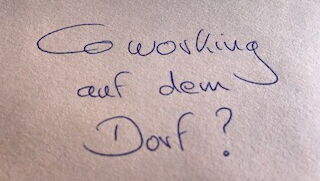 Coworking
auf dem
Dorf?